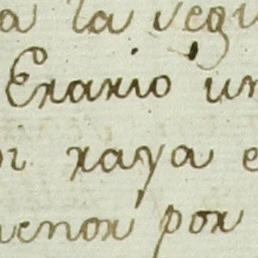 a la segu
Erario un
raya e
menor por